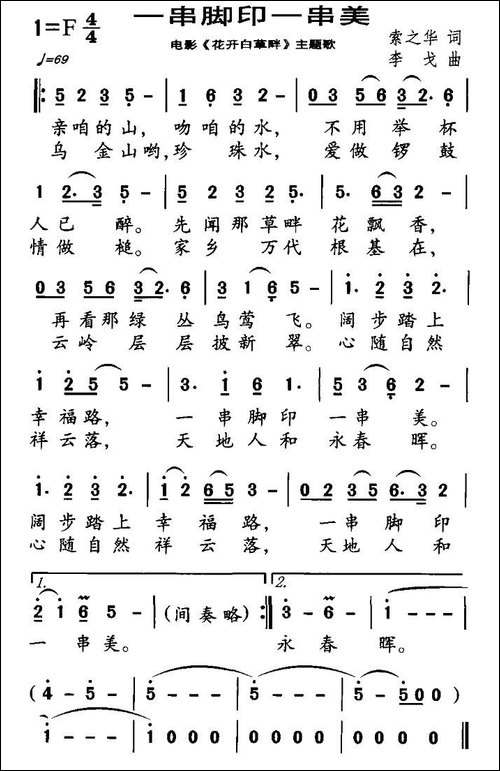 一串脚印一串美
1=F 4/4
♩=69
电影《花开白草畔》主题歌
索之华 词
李戈 曲
5 2 3 5 - | 1 6 3 2 - | 0 3 5 6 3 2· 6
亲咱的山， 吻咱的水， 不用举杯
乌金山哟，珍珠水， 爱做锣鼓
1 2· 3 5 - | 5 2 3 2 5· | 5· 6 3 2 -
人已醉。 先闻那草畔 花飘香，
情做槌。 家乡万代 根基在，
0 3 5 6 3 2· 6 | 3 1 6 5 - | 1· 2 3 2
再看那绿丛鸟莺飞。 阔步踏上
云岭层层披新翠。 心随自然
1 2 5 5 - | 3· 1 6 1· | 5 3 6 -
幸福路， 一串脚印 一串美。
祥云落， 天地人和 永春晖。
1· 2 3 2· | 1 2 6 5 3 | 0 0 2 3 5 6· 3 2
阔步踏上 幸福路， 一串脚印
心随自然 祥云落， 天地人和
1. 2.
2 1 6 5 - | (间奏略) :‖ 3 - 6 - | 1 - -
一串美。 永春晖。
( 4 - 5 - | 5 - - - | 5 - - - | 5 - 5 0 0 )
1 - - - | 1 0 0 0 | 0 0 0 0 | 0 0 0 0 ‖